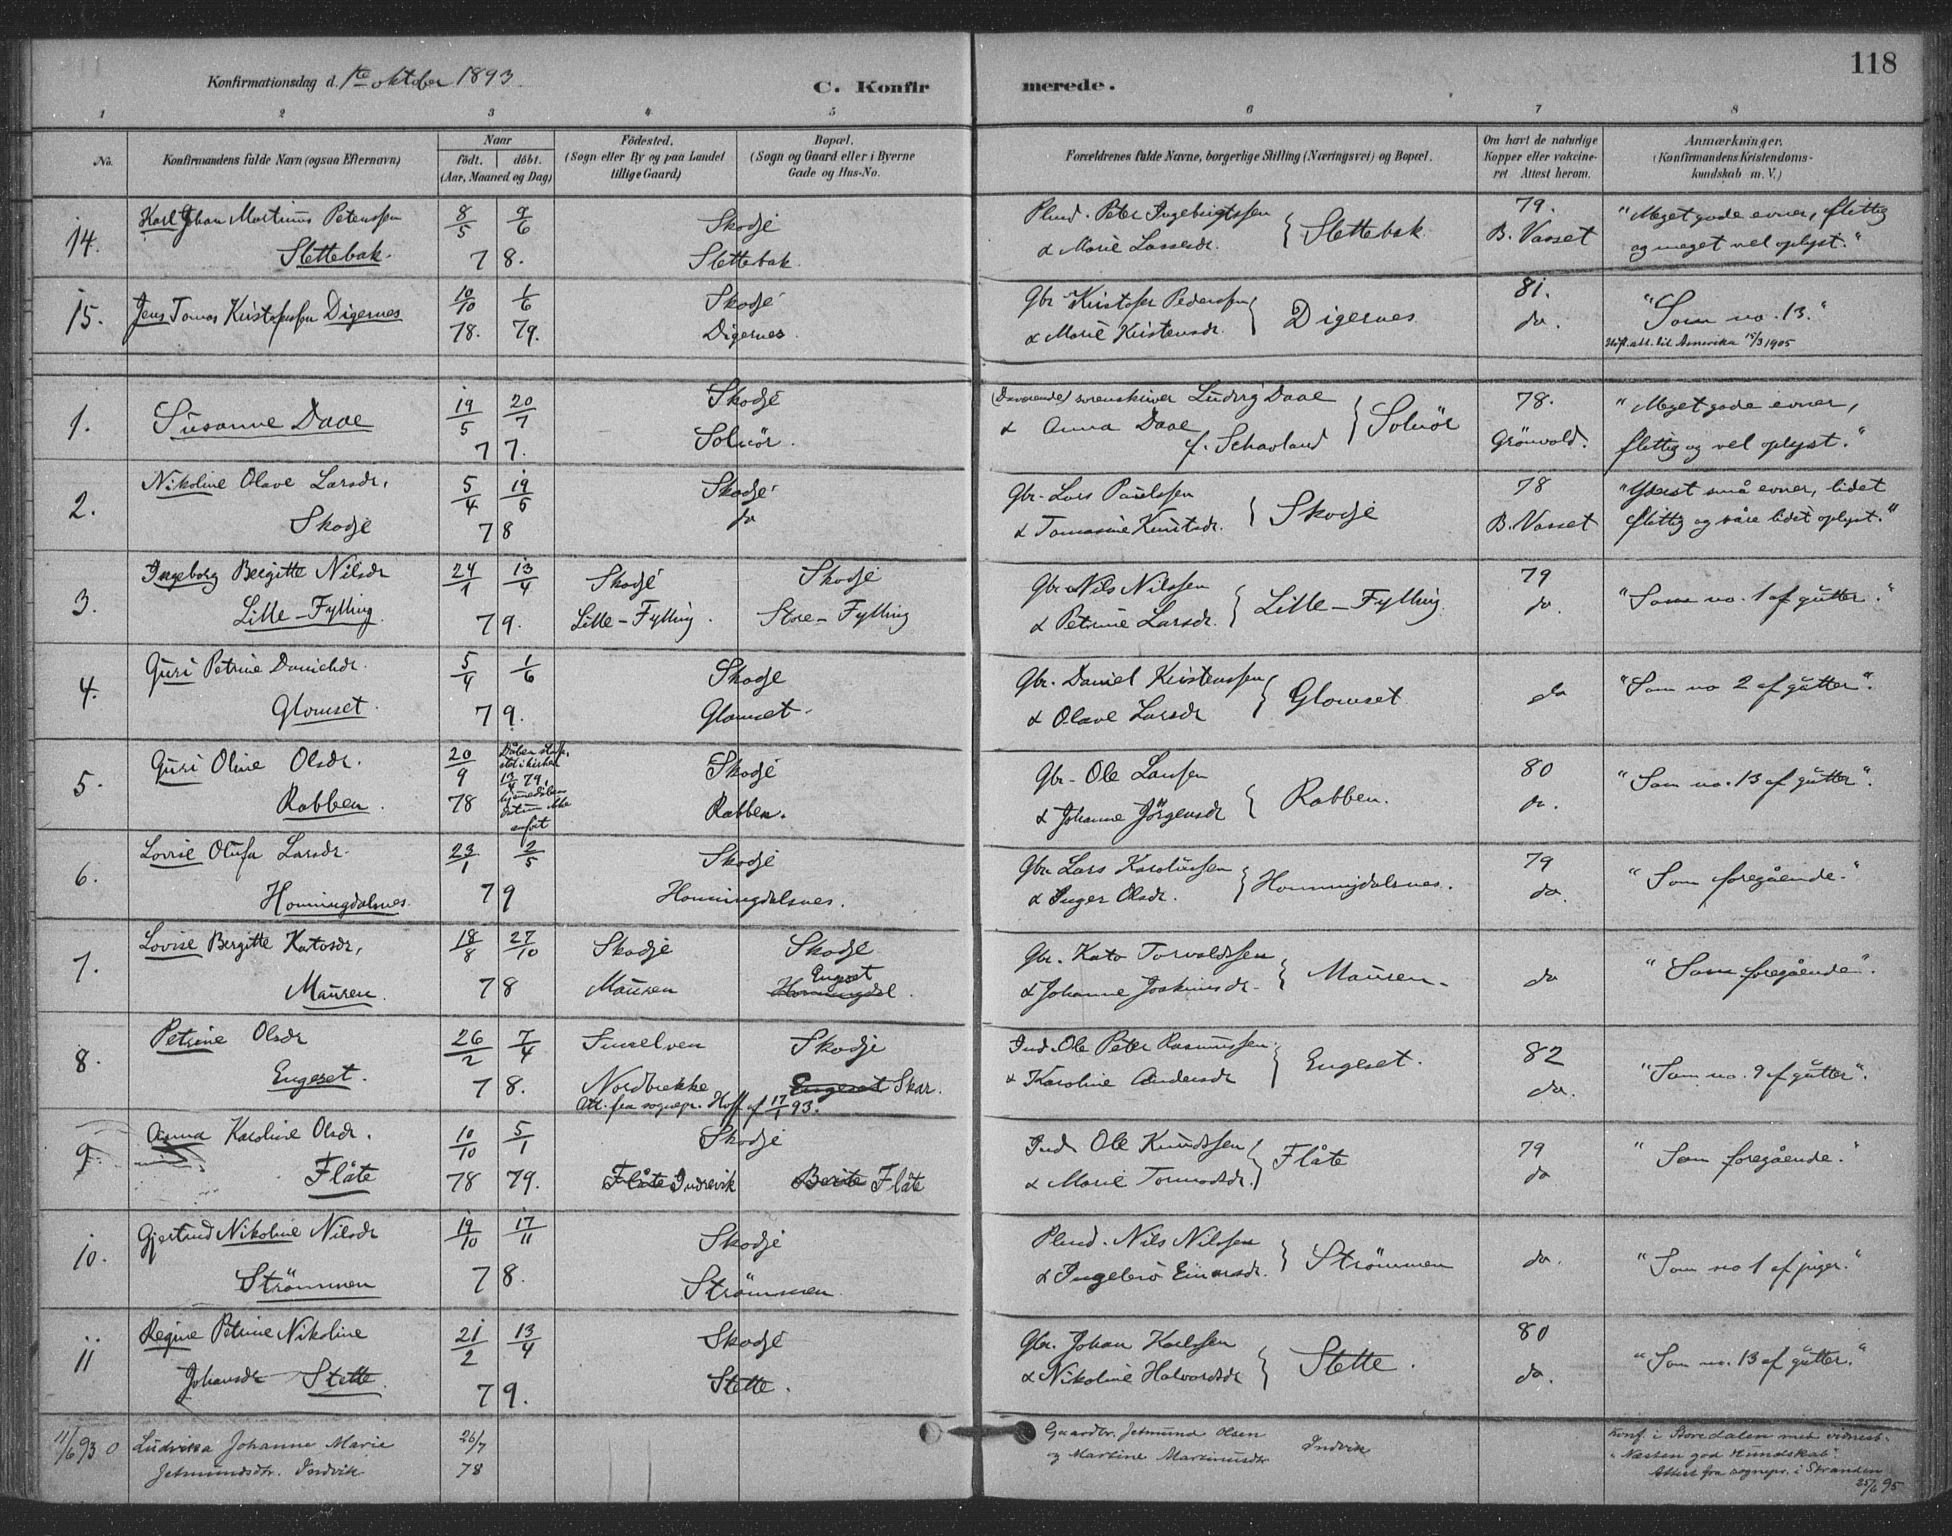 118
Konfirmationsdag d. 1te oktober 1893.
C. Konfirmerede.
1 2 3 4 5 6 7 8
No.
Konfirmandens fulde Navn (ogsaa Efternavn)
Naar
født. døbt.
(Aar, Maaned og Dag)
Fødested.
(Sogn eller By og paa Landet
tillige Gaard)
Bopæl.
(Sogn og Gaard eller i Byerne
Gade og Hus-No.
Forældrenes fulde Navne, borgerlige Stilling (Næringsvei) og Bopæl.
Om havt de naturlige
Kopper eller vakcine-
ret Attest herom.
Anmærkninger.
(Konfirmandens Kristendoms-
kundskab m. V.)
14. Karl Johan Martinus Peterssen 8/5 9/6 Skodje Plmd. Peter Ingebrigtssen 79. "Meget gode evner, flittig
Slettebak. 78. Slettebak & Marie Lassesdr. } Slettebak B. Vasset og meget vel oplyst."
15. Jens Tomas Kristofersen Digernes 10/10 1/6 Skodje Gbr. Kristofer Pederssen 81. "Som no. 13."
78. 79. Digernes. & Marie Kristensdr. } Digernes do. att. til Amerika 15/3 1905
1. Susanne Daae 19/5 20/7 Skodje (Daværende) sorenskriver Ludvig Daae 78. "Meget gode evner,
77. Solnör. & Anna Daae f. Schavland } Solnör Grönvold. flittig og vel oplyst."
2. Nikoline Olave Larsdr. 5/4 19/5 Skodje Gbr. Lars Paulssen 78 "Yderst små evner, lidet
Skodje 78 do & Tomasine Knutsdr. } Skodje B. Vasset flittig og såre lidet oplyst."
3. Ingeborg Bergitte Nilsdr 24/1 13/4 Skodje Skodje Gbr. Nils Nilssen 79 "Som no. 1 af gutter."
Lille-Fylling. 79. Lille-Fylling. Store-Fylling & Petrine Larsdr. } Lille-Fylling. do.
4. Guri Petrine Danielsdr. 5/4 1/6 Skodje Gbr. Daniel Kristenssen "Som no 2 af gutter".
Glomset. 79. Glomset. & Olave Larsdr } Glomset. do
5. Guri Oline Olsdr. 20/9 Dåben
i kirken 13/4 79, Skodje Gbr. Ole Larssen 80 "Som no. 13 af gutter".
Rabben. 78 hjemmedåben
datum ikke
anført Rabben. & Johanne Jörgensdr } Rabben. do.
6. Lovise Olufa Larsdr. 23/1 2/5 Skodje Gbr. Lars Karolussen 79 "Som foregående."
Honningdalsnes. 79 Honningdalsnes. & Inger Olsdr. } Honningdalsnes. do.
7. Lovise Bergitte Katosdr, 18/8 27/10 Skodje Skodje Gbr. Kato Torvaldssen "Som foregående".
Mauren. 78 Mauren Engset Honningdal. & Johanne Joakimsdr. } Mauren. do
8. Petrine Olsdr 26/2 7/4 Sunelven Skodje Ind. Ole Peter Rasmussen. 82 "Som no. 9 af gutter".
Engeset. 78. Nordbrekke Engeset Skar. & Karoline Andersdr } Engeset. do.
Att. fra sognepr. Hoff af 17/1 93.
9 Anna Karoline Olsdr. 10/10 5/1 Skodje Ind. Ole Knudssen 79 "Som foregående."
Flåte 78 79. Flåte Indrevik Flåte & Marie Tormodsdr. } Flåte do
10. Gjertrud Nikoline Nilsdr 19/10 17/11 Skodje Plmd. Nils Nilssen "Som no 1 af piger."
Strömmen 78. Strömmen. & Ingebrö Einarsdr. } Strömmen do.
11 Regine Petrine Nikoline 21/2 13/4 Skodje Gbr. Johan Karlssen 80 "Som no. 13 af gutter."
Johansdr Stette. 79. Stette. & Nikoline Halvardsdr } Stette. do.
11/6 93 0 Ludvika Johanne Marie 26/7 Gaardbr. Jetmund Olsen Konf. i Stordalen med vidnesb.
Jetmundsdtr. Indvik 78 og Martine Martinusdtr Indvik "Næsten god Kundskab"
Attest fra sognepr. i Stranden
25/6 95